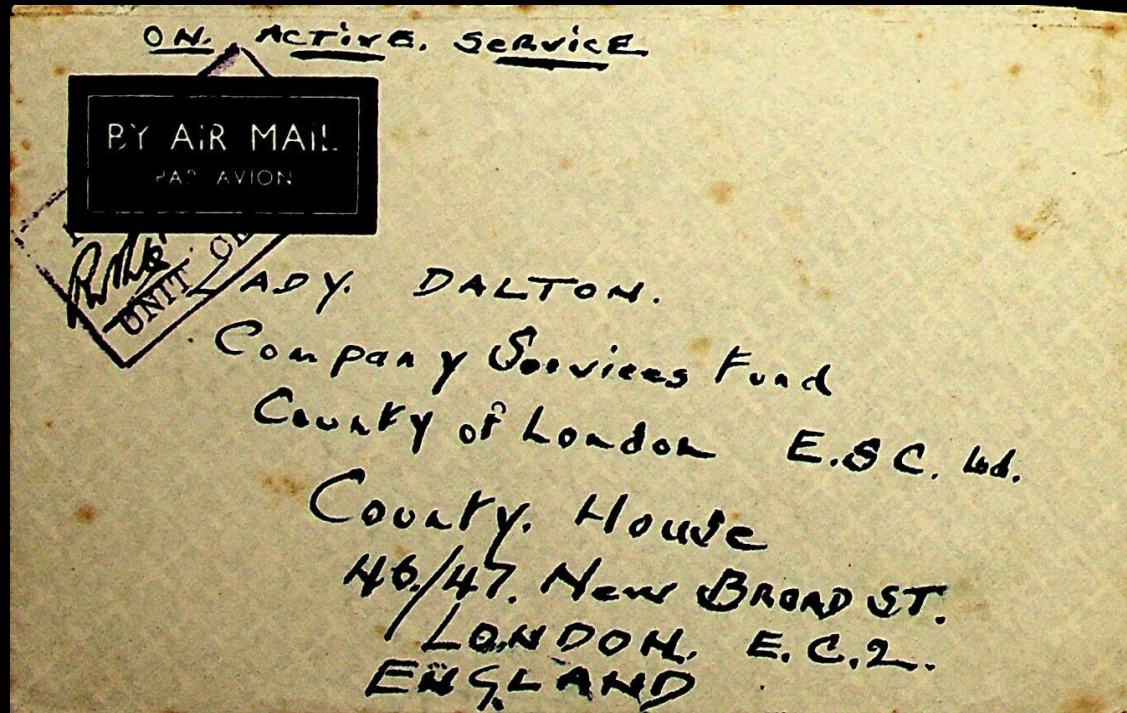 ON. ACTIVE. SERVICE
BY AIR MAIL
PAR AVION
UNIT
LADY. DALTON.
Company Services Fund
County of London E.S C. Ltd.
County. House
46/47. New BROAD ST.
LONDON. E.C.2.
ENGLAND